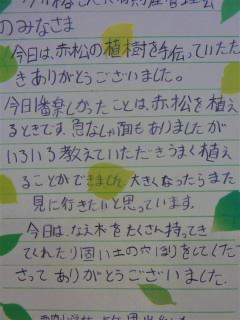 のみなさま
今日は、赤松の植樹を手伝っていただ
きありがとうございました。
今日1番楽しかったことは、赤松を植え
るときです。急な斜面もありましたが
いろいろ教えていただきうまく植え
ることができました。大きくなったらまた
見に行きたいと思っています。
今日は、なえ木をたくさん持ってき
てくれたり固い土の穴ほりをしてくだ
さってありがとうございました。